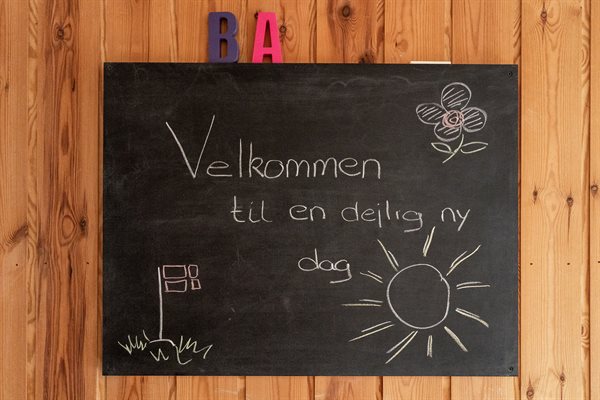 B A
Velkommen
til en dejlig ny
dag